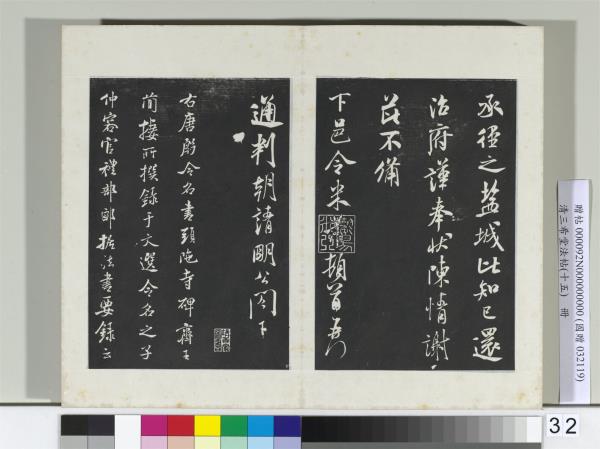 承径之盐城比知已還
治府謹奉状陳情謝
茲不備
下邑令米
頓首再
通判朝請明公閤下
右唐殷令名書頭陁寺碑齊王
簡撰所撰録于文選令名之子
仲容官禮部郎據法書要録云
贈帖 000092N000000000 (國贈 032119)
清三希堂法帖(十五) 冊
32